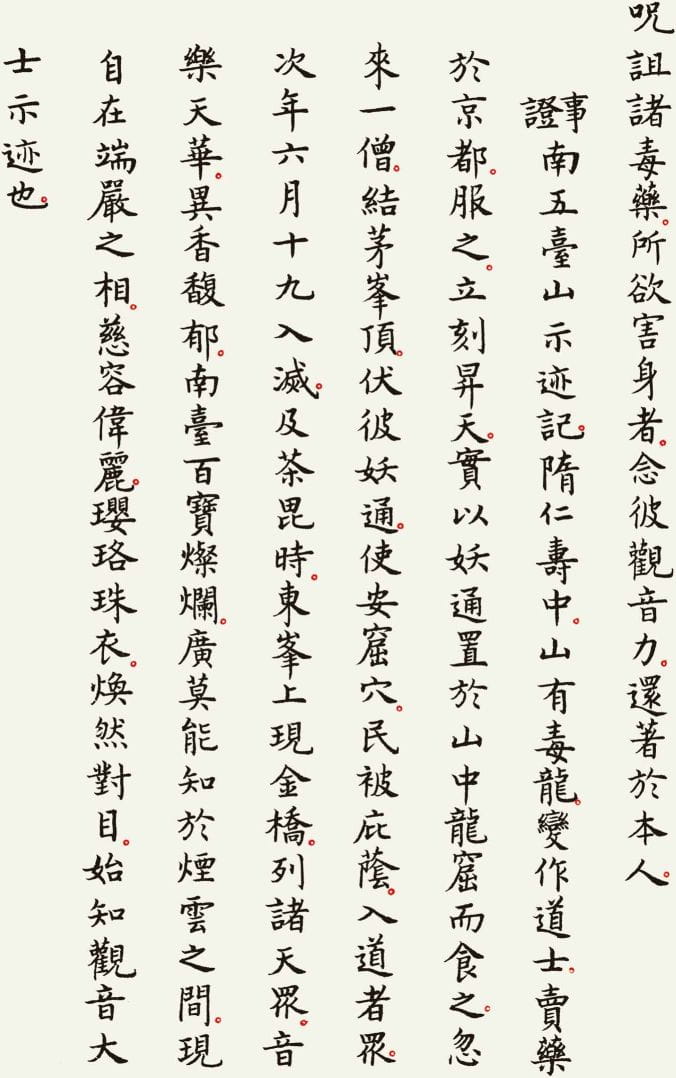 呪詛諸毒藥。所欲害身者。念彼觀音力。還著於本人。
事證南五臺山示迹記。隋仁壽中。山有毒龍。變作道士。賣藥
於京都。服之。立刻昇天。實以妖通置於山中龍窟而食之。忽
來一僧。結茅峯頂。伏彼妖通。使安窟穴。民被庇蔭。入道者眾。
次年六月十九入滅。及茶毘時。東峯上現金橋。列諸天眾。音
樂天華。異香馥郁。南臺百寶燦爛。廣莫能知於煙雲之間。現
自在端嚴之相。慈容偉麗。瓔珞珠衣。煥然對目。始知觀音大
士示迹也。